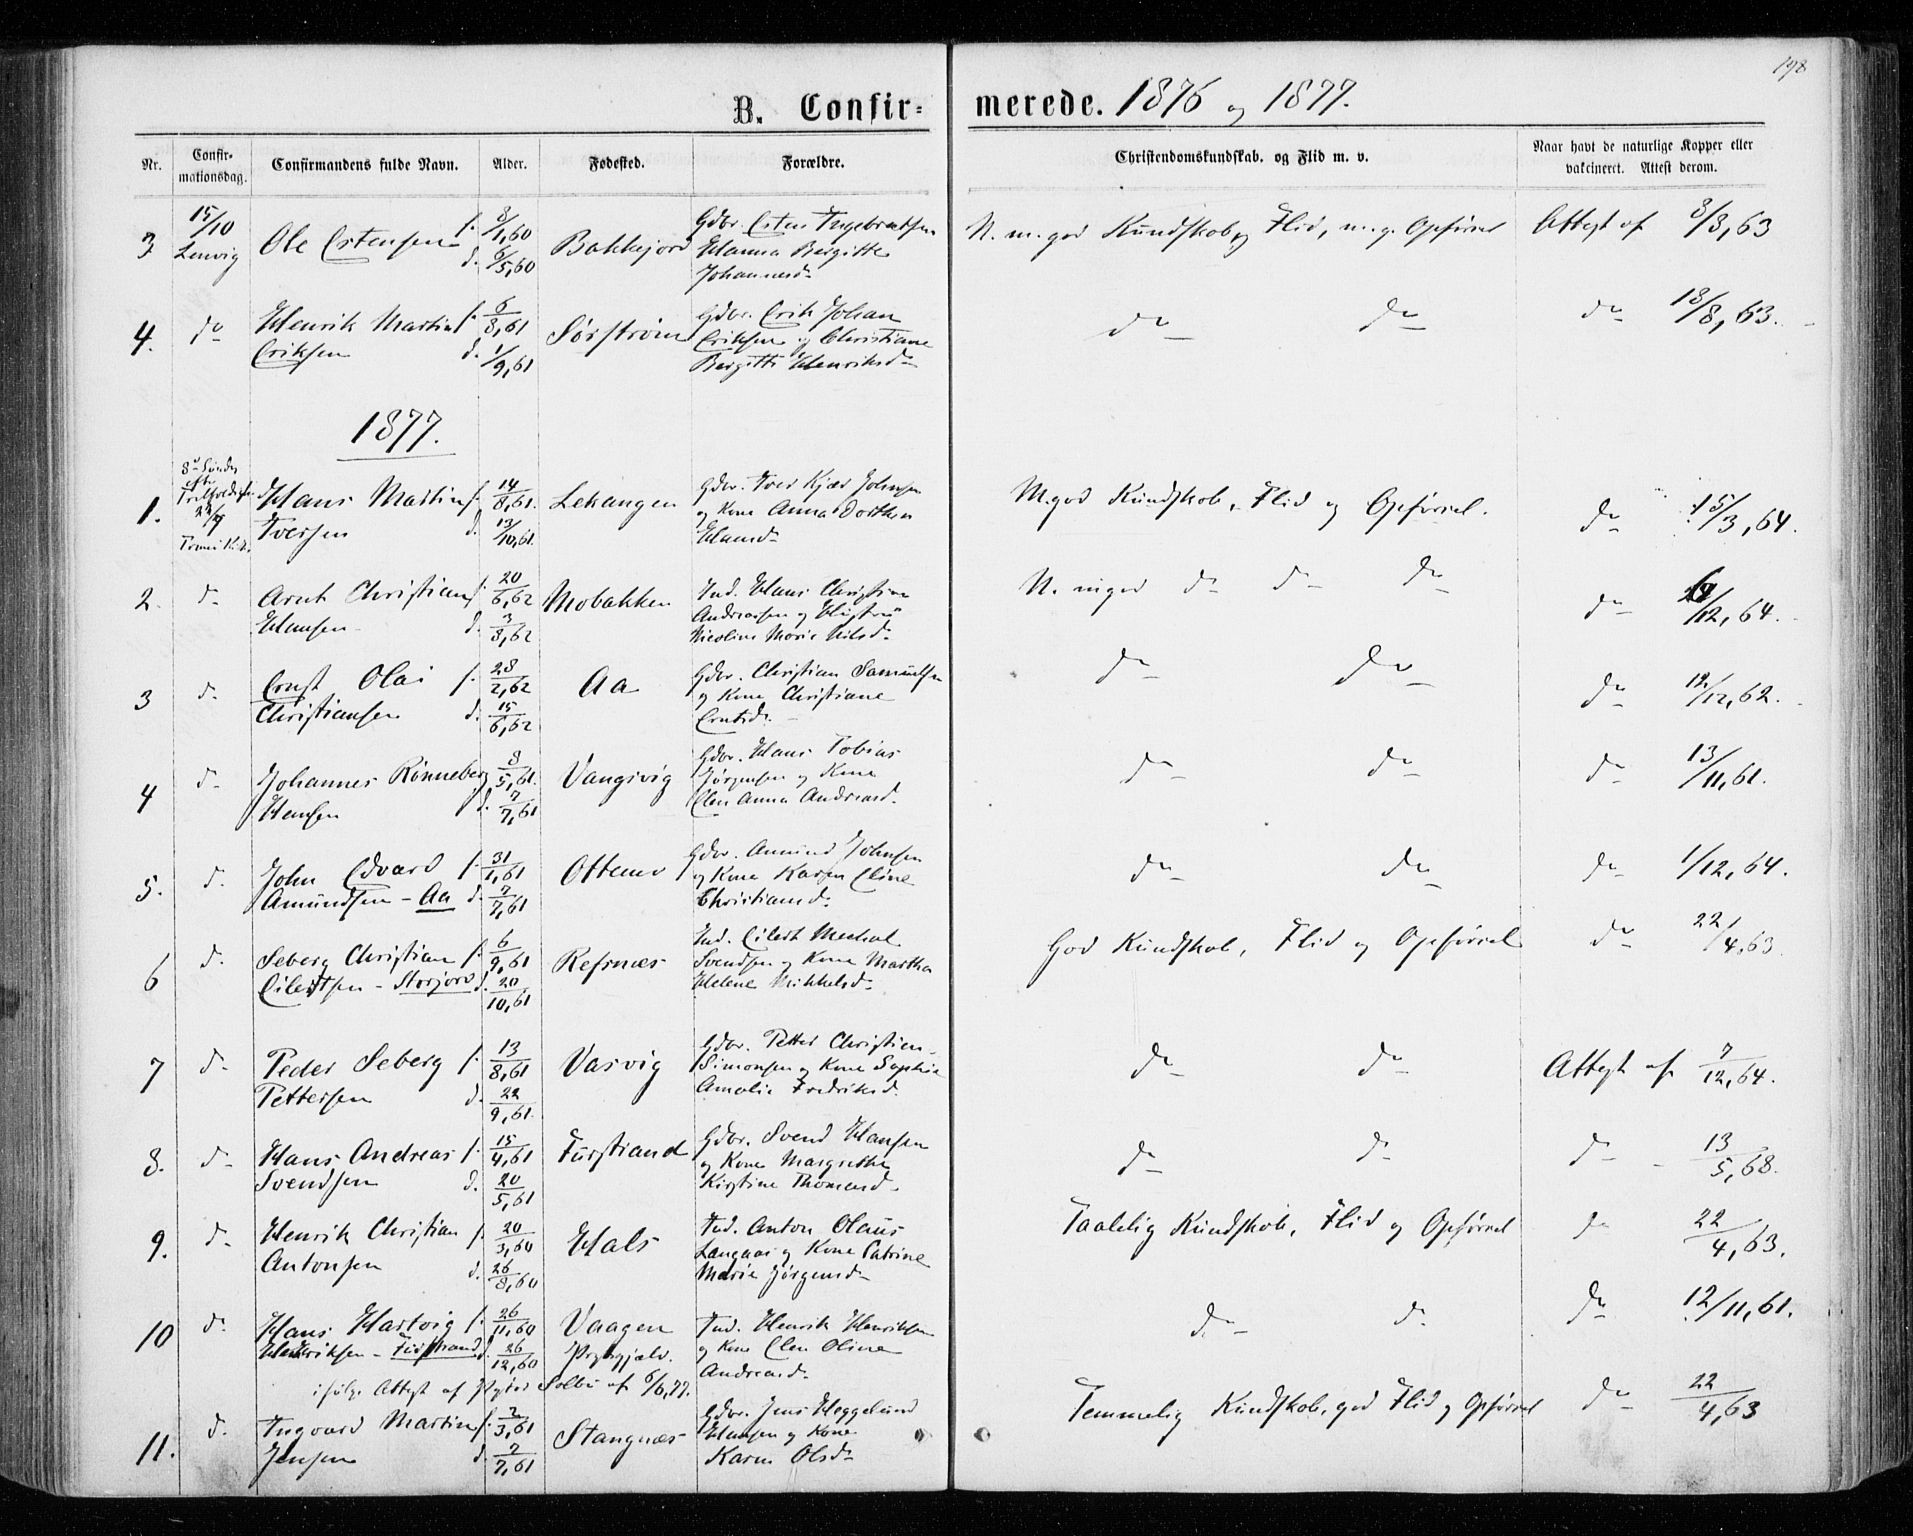 198
B. Confir- merede. 1876 og 1877.
Nr. Confir- mationsdag. Confirmandens fulde Navn. Alder. Fødested. Forældre. Christendomskundskab. og Flid m. v. Naar havt de naturlige Kopper eller vakcineret. Attest derom.
3. 15/10 Lenvig Ole Estensen f. 3/1,60 d. 6/5,60 Bakkejord Gdbr. Esten Ingebretsen
Hanna Birgitte
Johannesd. N. m. god Kundskab og Flid, m. g. Opførsel Attest af 8/3,63
4. do Henrik Martin f. 6/8,61 Sørstrøm Gdbr. Erik Johan
Eriksen d. 1/9,61 Eriksen og Christiane
Birgitte Henriksd. do do do 18/8,63.
1877.
1. 8de Søndag efter Trefoldighed 22/7 Hans Martin f. 14/8,61. Lekangen Gdbr. Iver Kjær Johnsen
Iversen d. 13/10,61. og Kone Anna Dorthea
Hansd. M. god Kundskab, Flid og Opførsel. do 15/3,64.
2. do Arnt Christian f. 20/6,62 Mobakken Ind. Hans Christian
Hansen d. 3/8,62 Andreassen og Hustru
Nicoline Marie Nilsd. N. m god do do do do 12,64.
3 d. Ernst Olai f. 28/2,62 Aa Gdbr. Christian Samuelsen
Christiansen d. 15/6,62 og Kone Christiane
Erntsd. do do do 12/12,62.
4 d. Johannes Rønneberg 3/5,61. Vangsvig Gdbr. Hans Tobias
Hansen d. 7/7,61 Jørgensen og Kone
Elen Anna Andreasd. do do do 13/11,61.
5. d. John Edvard f. 31/1,61 Ottenes Gdbr. Amund Johnsen
Amundsen - Aa d. 7/7,61 og Kone Karen Eline
Christiansd. do do do 1/12,64.
6 d. Seberg Christian f. 6/9,61 Refsnæs Ind. Eilert Mechal
Eilertsen - Storjord d. 20/10,61 Svendsen og Kone Martha
Helene Mikkelsd. God Kundskab, Flid og Opførsel do 22/4,63.
7 d. Peder Seberg f. 13/8,61 Vasvig Gdbr. Petter Christian
Pettersen d. 22/9,61. Simonsen og Kone Sophie
Amalie Fredriksd. do do Attest af 7/12,64.
8. d. Hans Andreas f. 15/4,61 Furstrand Gdbr. Svend Hansen
Svendsen d. 20/5,61 og Kone Margrethe
Kirstine Thomasd. do do do 13/5,68.
9. d. Henrik Christian f. 20/3,60 Hals Ind. Anton Olaus
Antonsen d. 26/8,60 Langaas og Kone Catrine
Marie Jørgensd. Taalelig Kundskab, Flid og Opførsel do 22/4,63.
10 d. Hans Hartvig f. 26/11,60 Vaagen Ind. Henrik Henriksen
Henriksen - Furstrand d. 26/12,60 Prgjæld. og Kone Elen Oline
Andreasd. do do do 12/11,61.
ifølge Attest af Solbu af 6/6,77.
11. d. Ingvard Martin f. 2/3,61 Stangnæs Gdbr. Jens Heggelund
Jensen d. 7/7,61 Hansen og Kone
Karen Olsd. Temmelig Kundskab, god Flid og Opførsel do 22/4,63